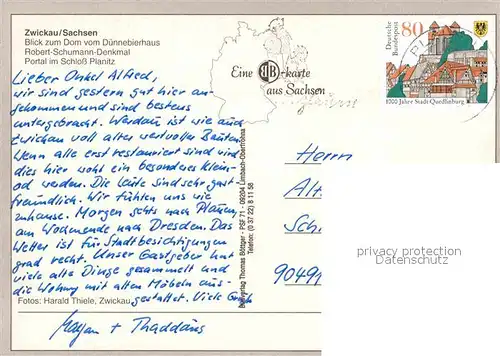 Zwickau/Sachsen
Blick zum Dom vom Dünnebierhaus
Robert-Schumann-Denkmal
Portal im Schloß Planitz
Lieber Onkel Alfred,
wir sind gestern gut hier an-
gekommen und sind bestens
untergebracht. Werdau ist wie auch
Zwickau voll alter wertvoller Bauten.
Wenn alle erst restauriert sind wird
dies hier wohl ein besonderes Klein-
od werden. Die Leute sind sehr gast-
freundlich. Wir fühlen uns wie
zuhause. Morgen gehts nach Plauen,
am Wochenende nach Dresden. Das
Wetter ist für Stadtbesichtigungen
grad recht. Unser Gastgeber hat
viele alte Dinge gesammelt und
die Wohnung mit alten Möbeln aus-
gestattet. Viele
Fotos: Harald Thiele, Zwickau
Marjan + Thaddäus
Eine BB-karte
aus Sachsen
Bildverlag Thomas Böttger - PSF 71 - 09204 Limbach-Oberfrohna
Telefon: (0 37 22) 8 11 58
Deutsche
Bundespost
80
1000 Jahre Stadt Quedlinburg
Herrn
Alf
Sch
9049
privacy protection
Datenschutz